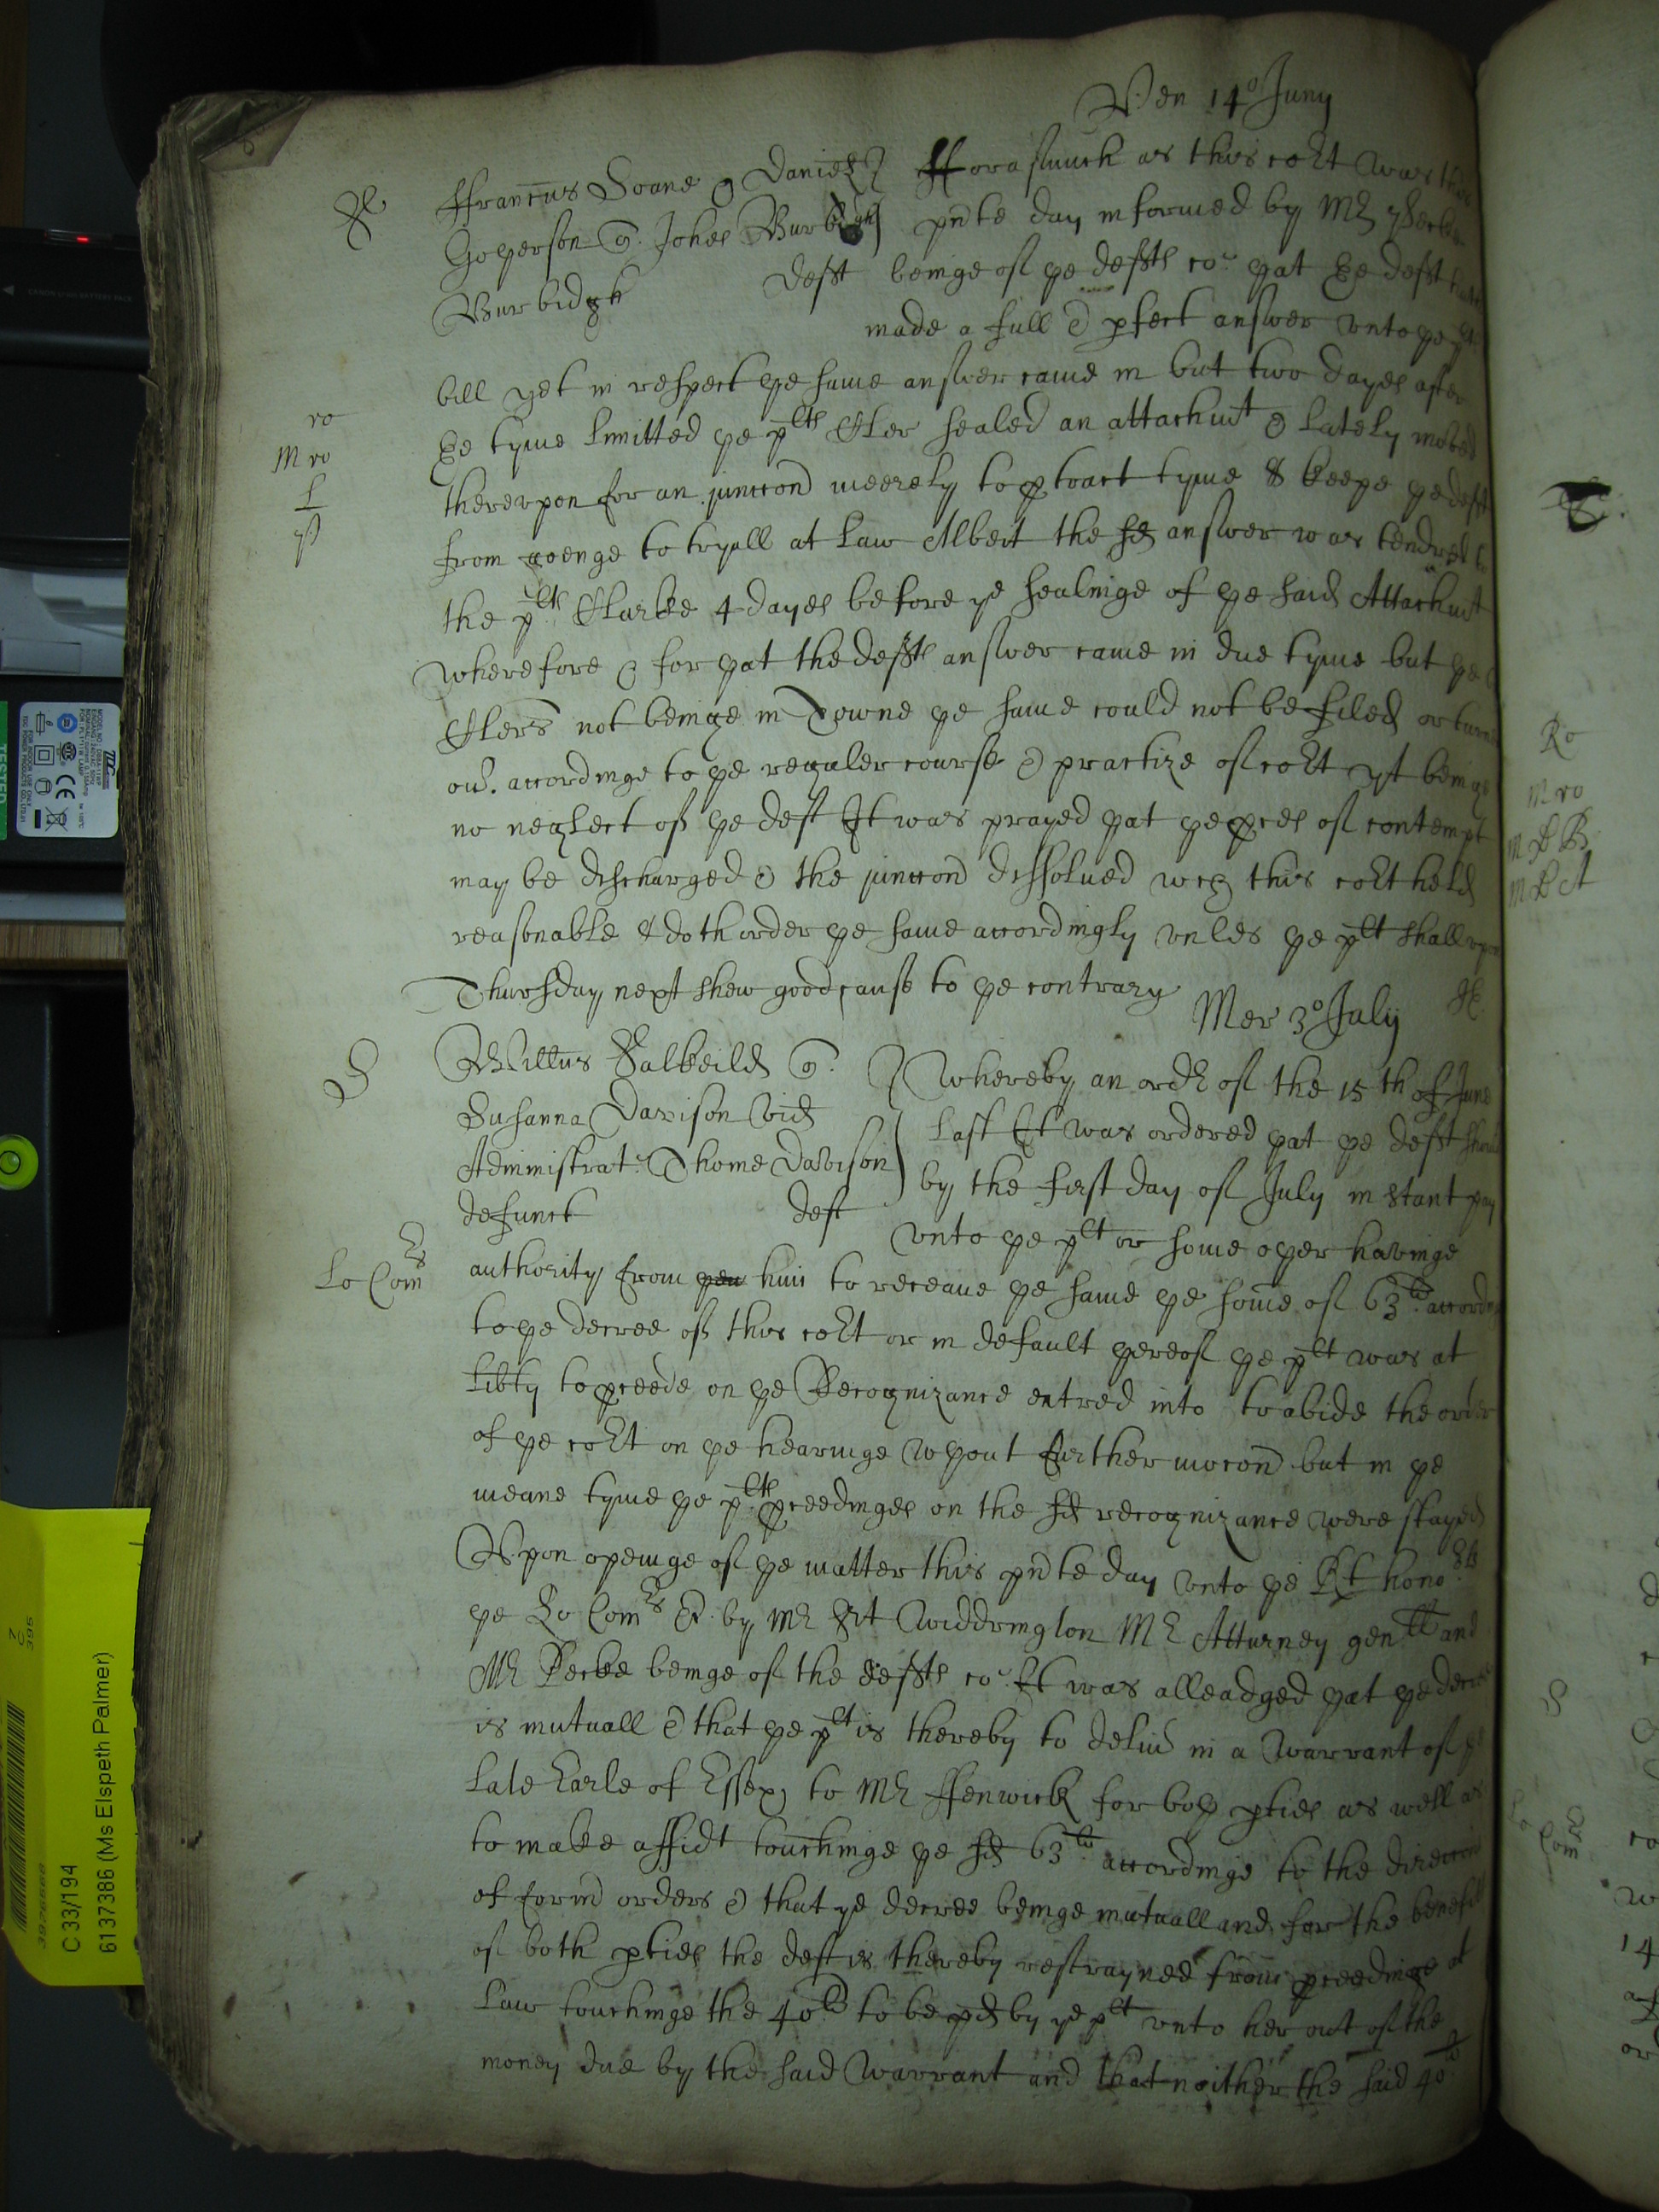 Ven 14o Juny
ffrancus Soane & Daniel
Goperson q. Johes Burbidgh
Burbidgh deft
fforasmuch as this cort was this
pnte day informed by Mr
beinge of ye defts co: yat ye deft hath
made a full & pfect answer vnto ye plts
bill yet in respect ye same answer came in but two dayes after
ye tyme limitted ye plts Cler sealed an attachmt & lately moved
therevpon for an junccon meerely to ptract tyme & keepe ye deft
from goenge to tryall at Law Albeit the sd answer was tendred to
the plts Clarke 4 dayes before ye sealinge of ye said Attachmt
Wherefore & for yat the defts answer came in due tyme but ye
Clers not beinge in Towne ye same could not be filed or
accordinge to ye reguler course & practize of cort yt beinge
no neglect of ye deft It was prayed yat ye pces of contempt
may be discharged & the junccon dissolued wch this cort held
reasonable & doth order ye same accordingly vnles ye plt shall vpon
Thursday next shew good cause to ye contrary
ro
M ro
L
Mer 3o July
Willus Salkeild q.
Susanna Davison vid
Administrat. Thome Davison
defunct deft
S
Whereby an ordr of the 15th of June
last It was ordered yat ye deft should
by the first day of July instant pay
vnto ye plt or some oyer havinge
Lo Comrs
authority from yem him to receaue ye same ye some of 63li accordinge
to ye decree of this cort or in default yereof ye plt was at
libty to pceede on ye Recognizance entred into to abide the order
of ye cort on ye hearinge wyout further mocon but in ye
meane tyme ye plts pceedinges on the sd recognizance were stayed
Vpon openinge of ye matter this pnte day vnto ye Rt honoble
ye Lo Comrs &. by Mr Srt Widdrington Mr Atturney genll and
Mr Pecke beinge of the defts co: It was alleadged yat ye decree
is mutuall & that ye plt is thereby to deliu in a Warrant of ye
late Earle of Essex to Mr ffenwick for boy pties as well as
to make affidt touchinge ye sd 63li accordinge to the direccon
of formr orders & that ye decree beinge mutuall and for the benefit
of both pties the deft is thereby restrayned from pceedinge at
Law touchinge the 40li to be pd by ye plt vnto her out of the
money due by the said Warrant and that neither the said 40li
Ro
M ro
S
Lo Comrs
14
CANON
TESTED
C 33/194
6137386 (Ms Elspeth Palmer)